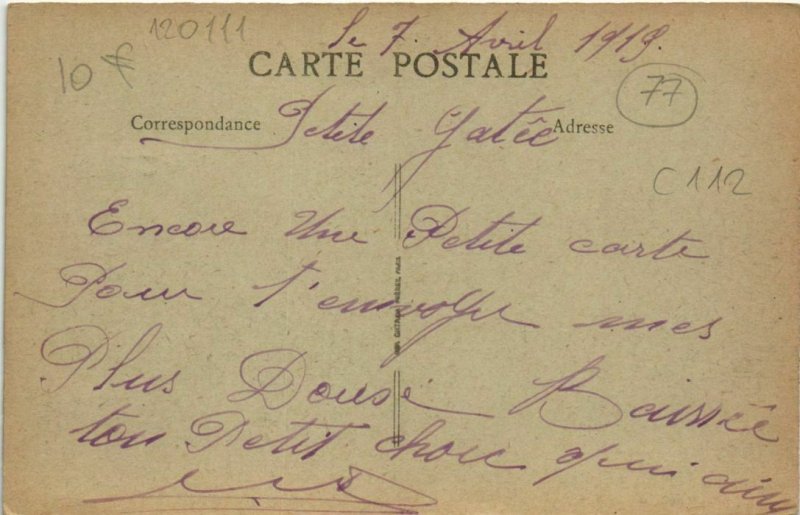 120111
Le 7 Avril 1919.
10 F
CARTE POSTALE
77
Correspondance
Adresse
Petite Gatêe
C112
Encore Une Petite carte
Pour t'envoyer mes
Plus Douse Baissée
ton Petit chou qui